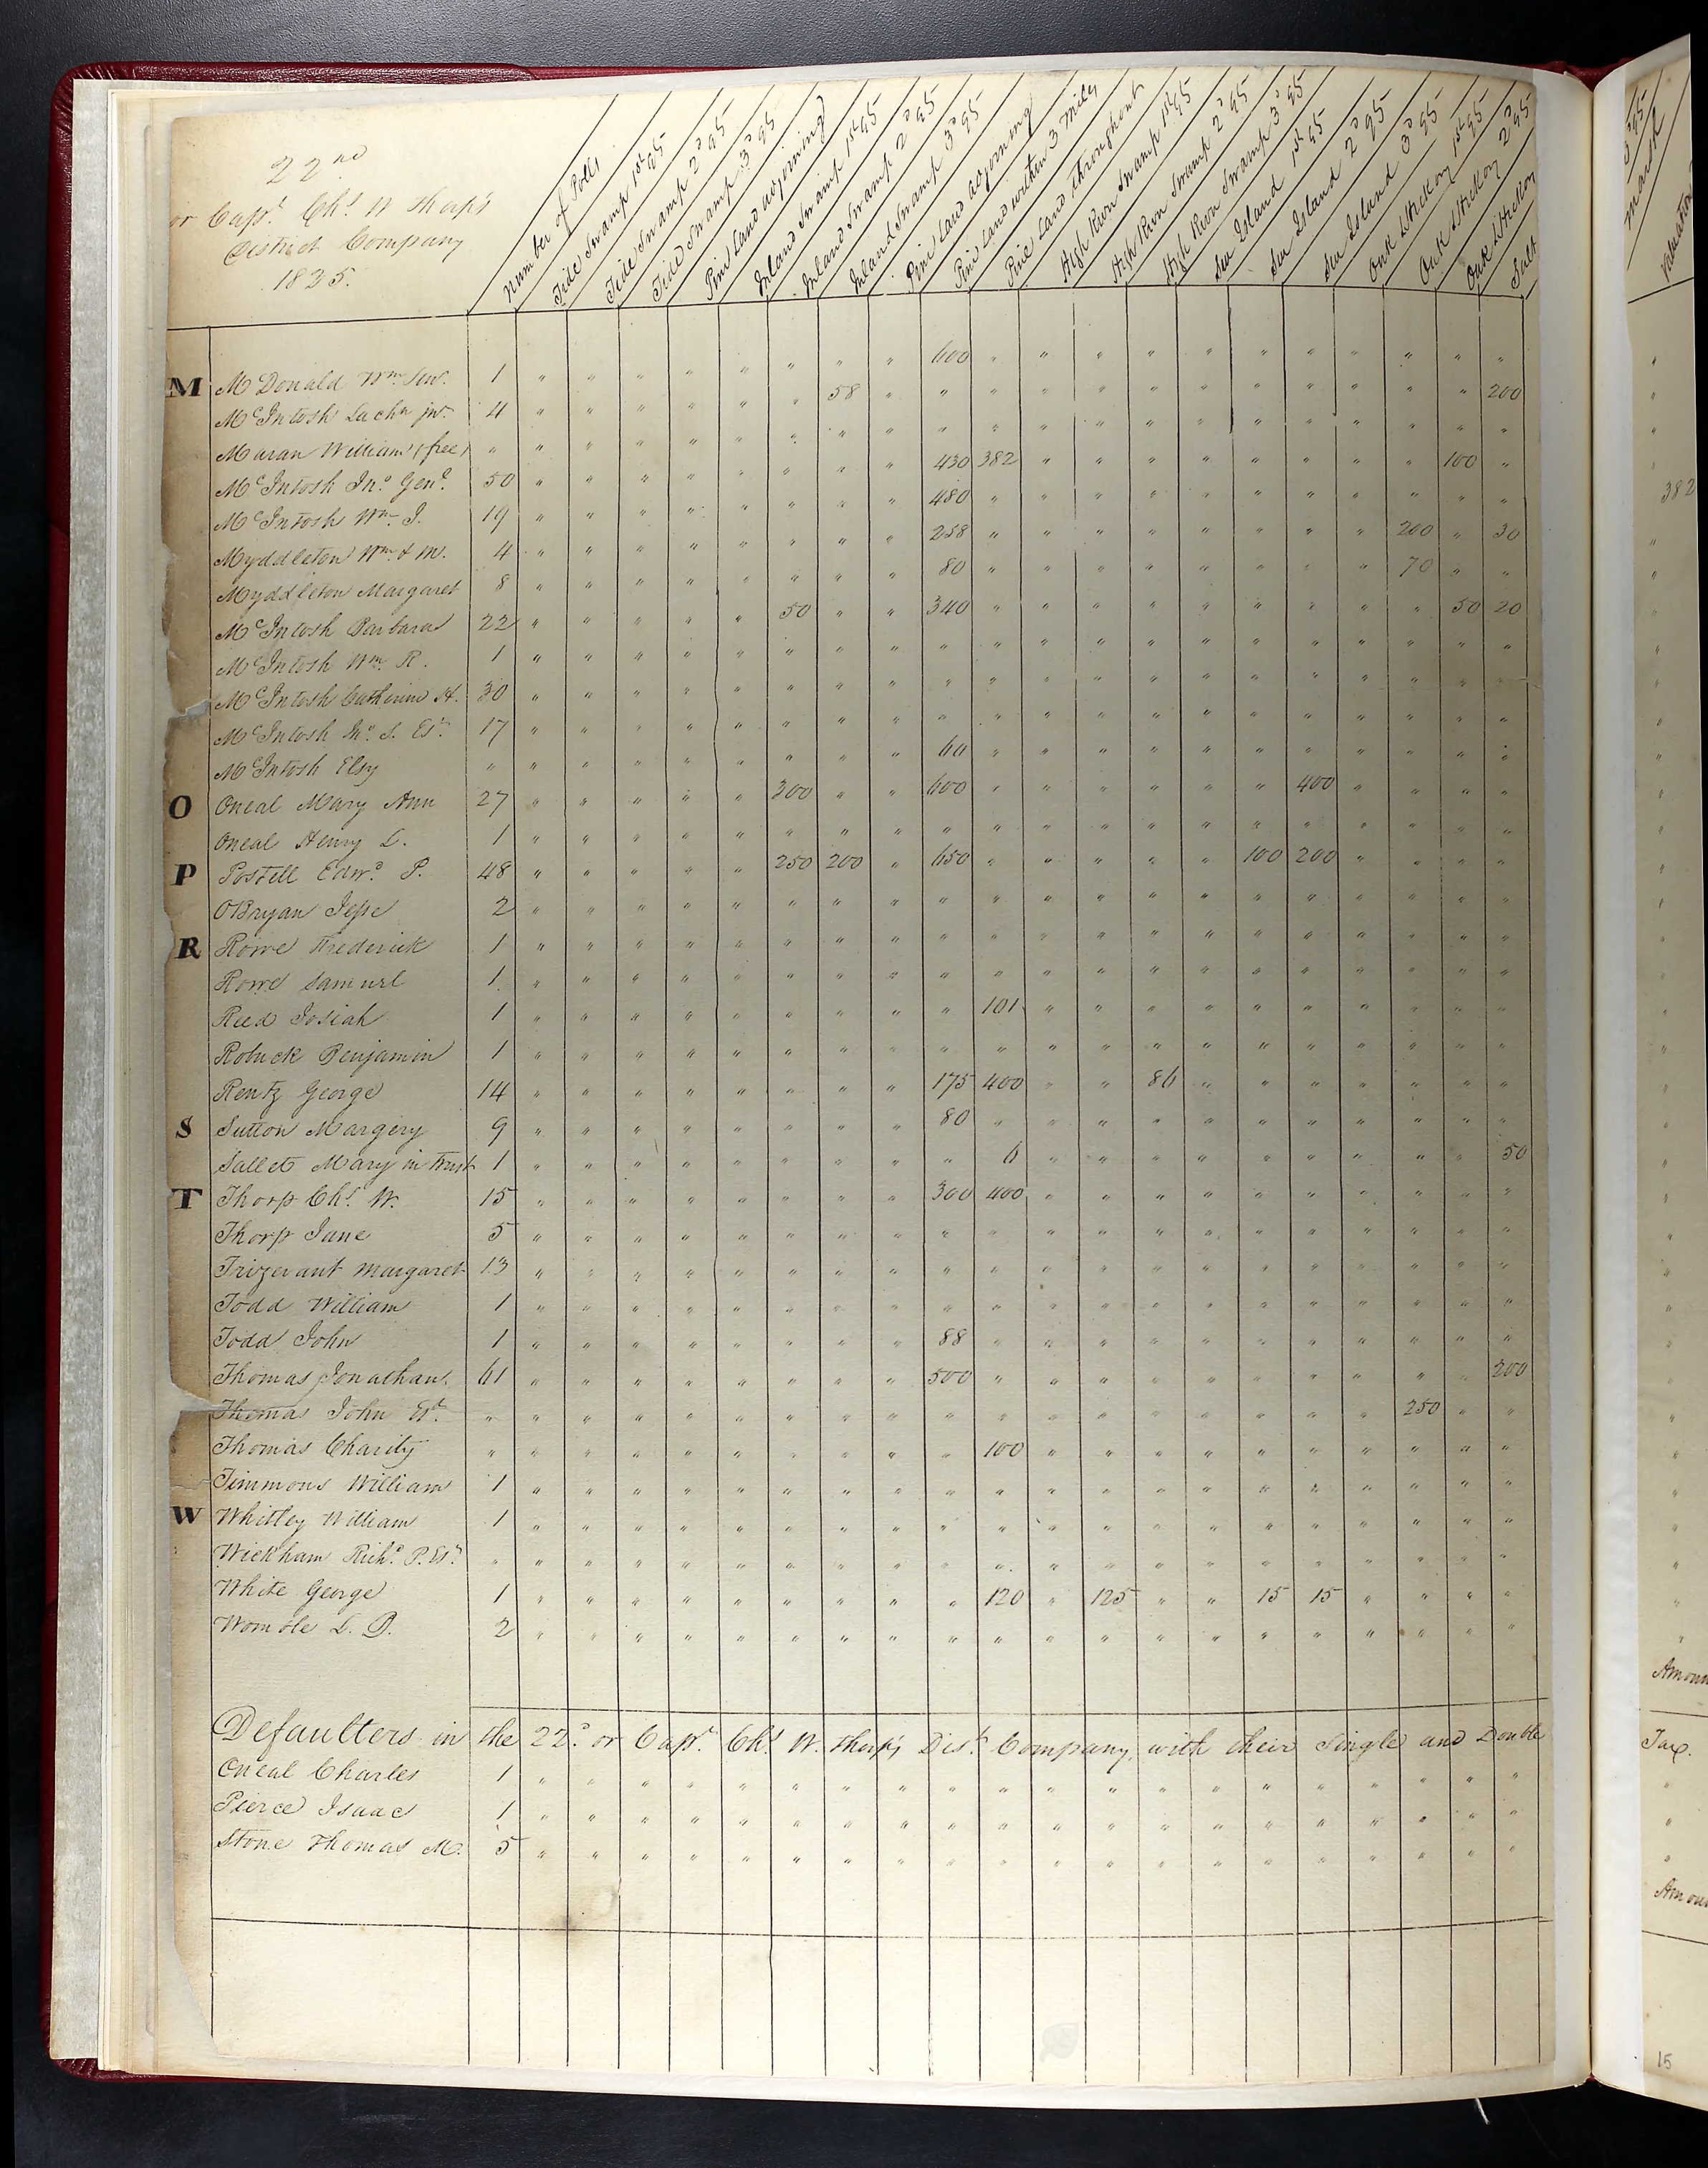 22nd
or Capt. Chs. W Thorp's
District Company
1825.
Number of Polls
Tide Swamp 1st q5
Tide Swamp 2d q5
Tide Swamp 3d q5
Pine Land adjoining
Inland Swamp 1st q5
Inland Swamp 2d q5
Inland Swamp 3d q5
Pine Land adjoining
Pine Land within 3 Miles
Pine Land throughout
High River Swamp 1st q5
High River Swamp 2d q5
High River Swamp 3d q5
Sea Island 1st q5
Sea Island 2d q5
Sea Island 3d q5
Oak & Hickory 1st q5
Oak & Hickory 2d q5
Oak & Hickory
Salt
M McDonald Wm. Senr. 1 " " " " " " " " 600 " " " " " " " " " " "
McIntosh Lachn jnr. 4 " " " " " " 58 " " " " " " " " " " " " 200
Maran William (free) " " " " " " " " " " " " " " " " " " " " "
McIntosh Jno. Genl. 50 " " " " " " " " 430 382 " " " " " " " " 100 "
McIntosh Wm. J. 19 " " " " " " " " 480 " " " " " " " " " " "
Myddleton Wm. & M. 4 " " " " " " " " 258 " " " " " " " " 200 " 30
Myddleton Margaret 8 " " " " " " " " 80 " " " " " " " " 70 " "
McIntosh Barbara 22 " " " " " 50 " " 340 " " " " " " " " " 50 20
McIntosh Wm. R. 1 " " " " " " " " " " " " " " " " " " " "
McIntosh Catherine H. 30 " " " " " " " " " " " " " " " " " " " "
McIntosh Jno. S. Est. 17 " " " " " " " " " " " " " " " " " " " "
McIntosh Elsy " " " " " " " " " 60 " " " " " " " " " " "
O Oneal Mary Ann 27 " " " " " 300 " " 600 " " " " " " 400 " " " "
Oneal Henry L. 1 " " " " " " " " " " " " " " " " " " " "
P Postell Edwd. P. 48 " " " " " 250 200 " 650 " " " " " 100 200 " " " "
OBryan Jesse 2 " " " " " " " " " " " " " " " " " " " "
R Rowe Frederick 1 " " " " " " " " " " " " " " " " " " " "
Rowe Samuel 1 " " " " " " " " " " " " " " " " " " " "
Reed Josiah 1 " " " " " " " " " 101 " " " " " " " " " "
Robuck Benjamin 1 " " " " " " " " " " " " " " " " " " " "
Rentz George 14 " " " " " " " " 175 400 " " 86 " " " " " " "
S Sutton Margery 9 " " " " " " " " 80 " " " " " " " " " " "
Sallet Mary in trust 1 " " " " " " " " " 6 " " " " " " " " " 50
T Thorp Chs. W. 15 " " " " " " " " 300 400 " " " " " " " " " "
Thorp Jane 5 " " " " " " " " " " " " " " " " " " " "
Trizevant Margaret 13 " " " " " " " " " " " " " " " " " " " "
Todd William 1 " " " " " " " " " " " " " " " " " " " "
Todd John 1 " " " " " " " " 88 " " " " " " " " " " "
Thomas Jonathan. 61 " " " " " " " " 500 " " " " " " " " " " 200
Thomas John Est. " " " " " " " " " " " " " " " " " " 250 " "
Thomas Charity " " " " " " " " " " 100 " " " " " " " " " "
Timmons William 1 " " " " " " " " " " " " " " " " " " " "
W Whitley William 1 " " " " " " " " " " " " " " " " " " " "
Wickham Richd. P. Est. " " " " " " " " " " " " " " " " " " " " "
White George 1 " " " " " " " " " 120 " 125 " " 15 15 " " " "
Womble L. D. 2 " " " " " " " " " " " " " " " " " " " "
Defaulters in the 22d. or Capt. Chs. W. Thorp's Dist. Company, with their Single and Double
Oneal Charles 1 " " " " " " " " " " " " " " " " " " " "
Pierce Isaac 1 " " " " " " " " " " " " " " " " " " " "
Stone Thomas M. 5 " " " " " " " " " " " " " " " " " " " "
Marsh
Valuation
382
Amoun
Tax.
Amoun
15